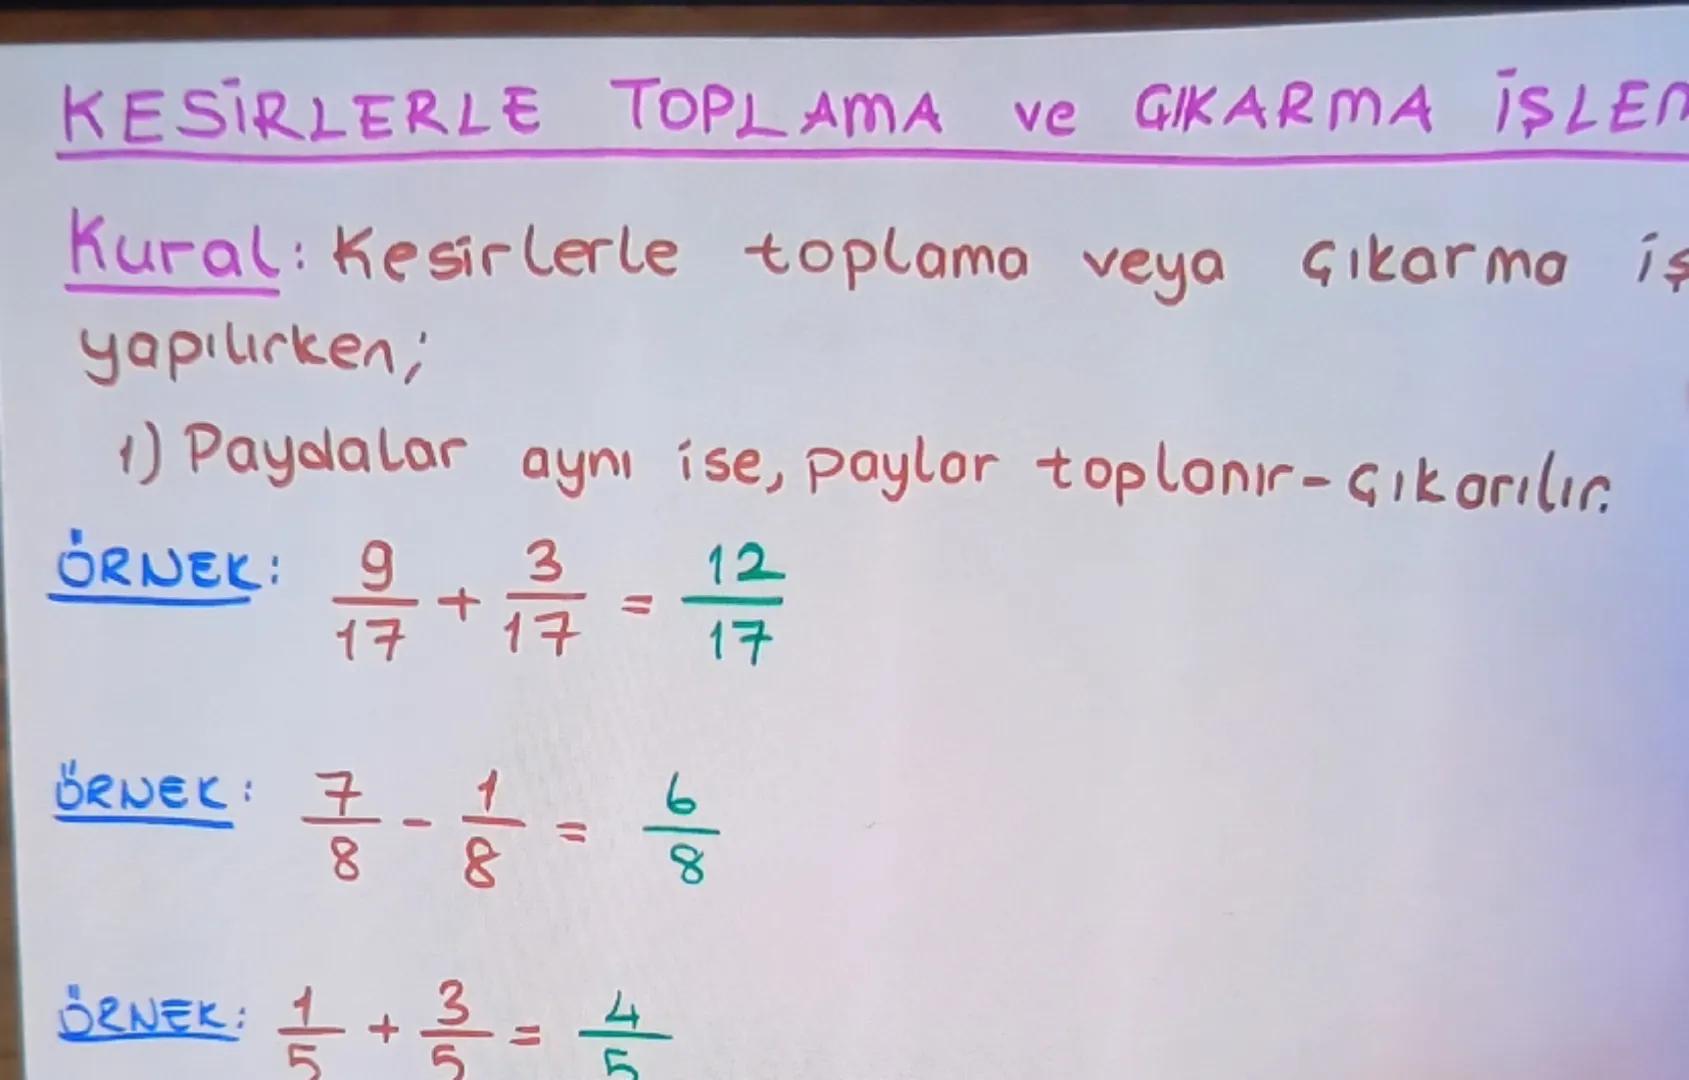 KESİRLERLE TOPLAMA ve ÇIKARMA
Kural: Kesirlerle toplama veya çıkarma
yapılırken;
1) Paydalar aynı ise, paylar toplanır-çıkarılır.
ÖRNEK: 9/17 + 3/17 = 12/17
ÖRNEK: 7/8 - 1/8 = 6/8
ÖRNEK: 1/5 + 3/5 = 4/5